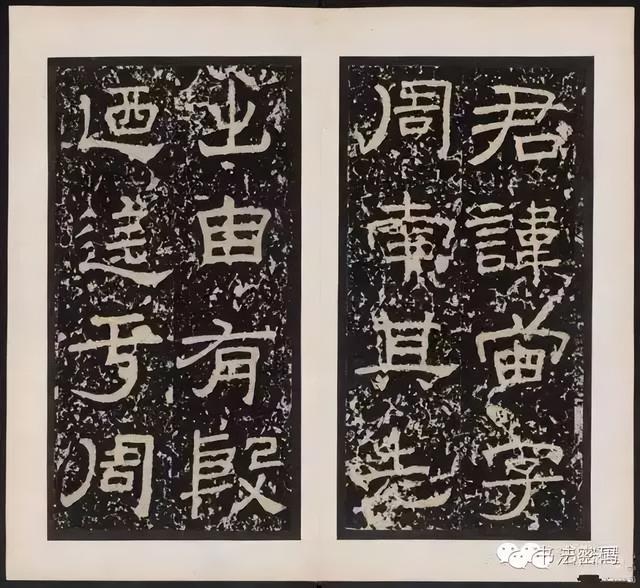 君諱宙字
周南其先
出自有殷
迺迄于周
书法密码